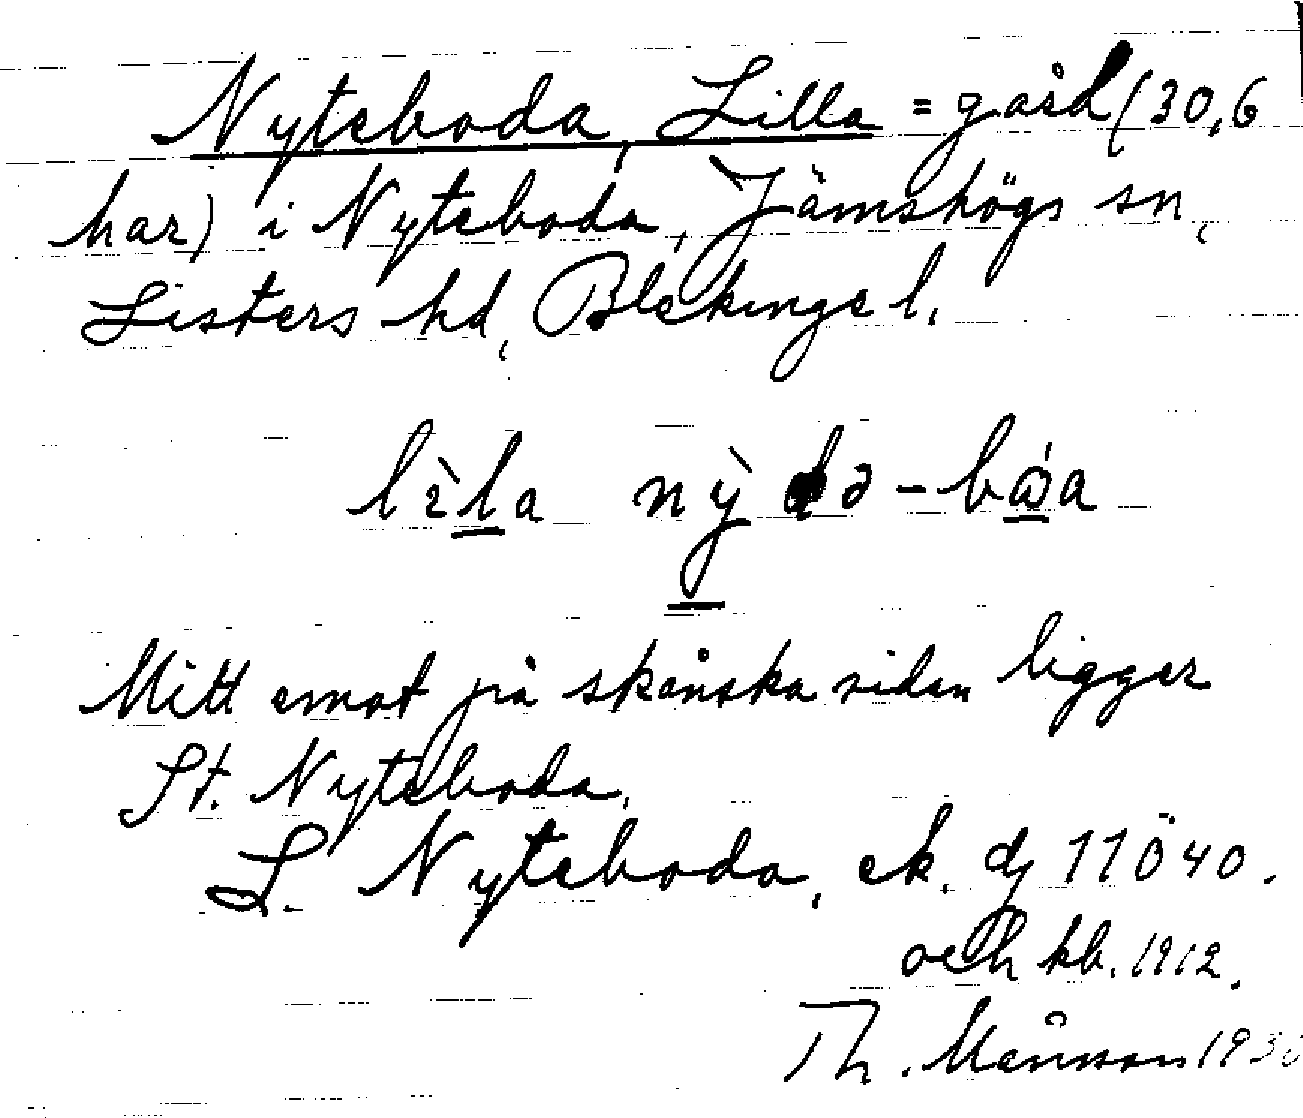 Nyteboda, Lilla = gård (30,6
har) i Nyteboda, Jämshögs sn,
Listers hd, Blekinge l.
lìla nỳdə-bóa
Mitt emot på skånska sidan ligger
St. Nyteboda.
L. Nyteboda, ek. dj 11Ö40.
och kb. 1912.
Th. Månsson